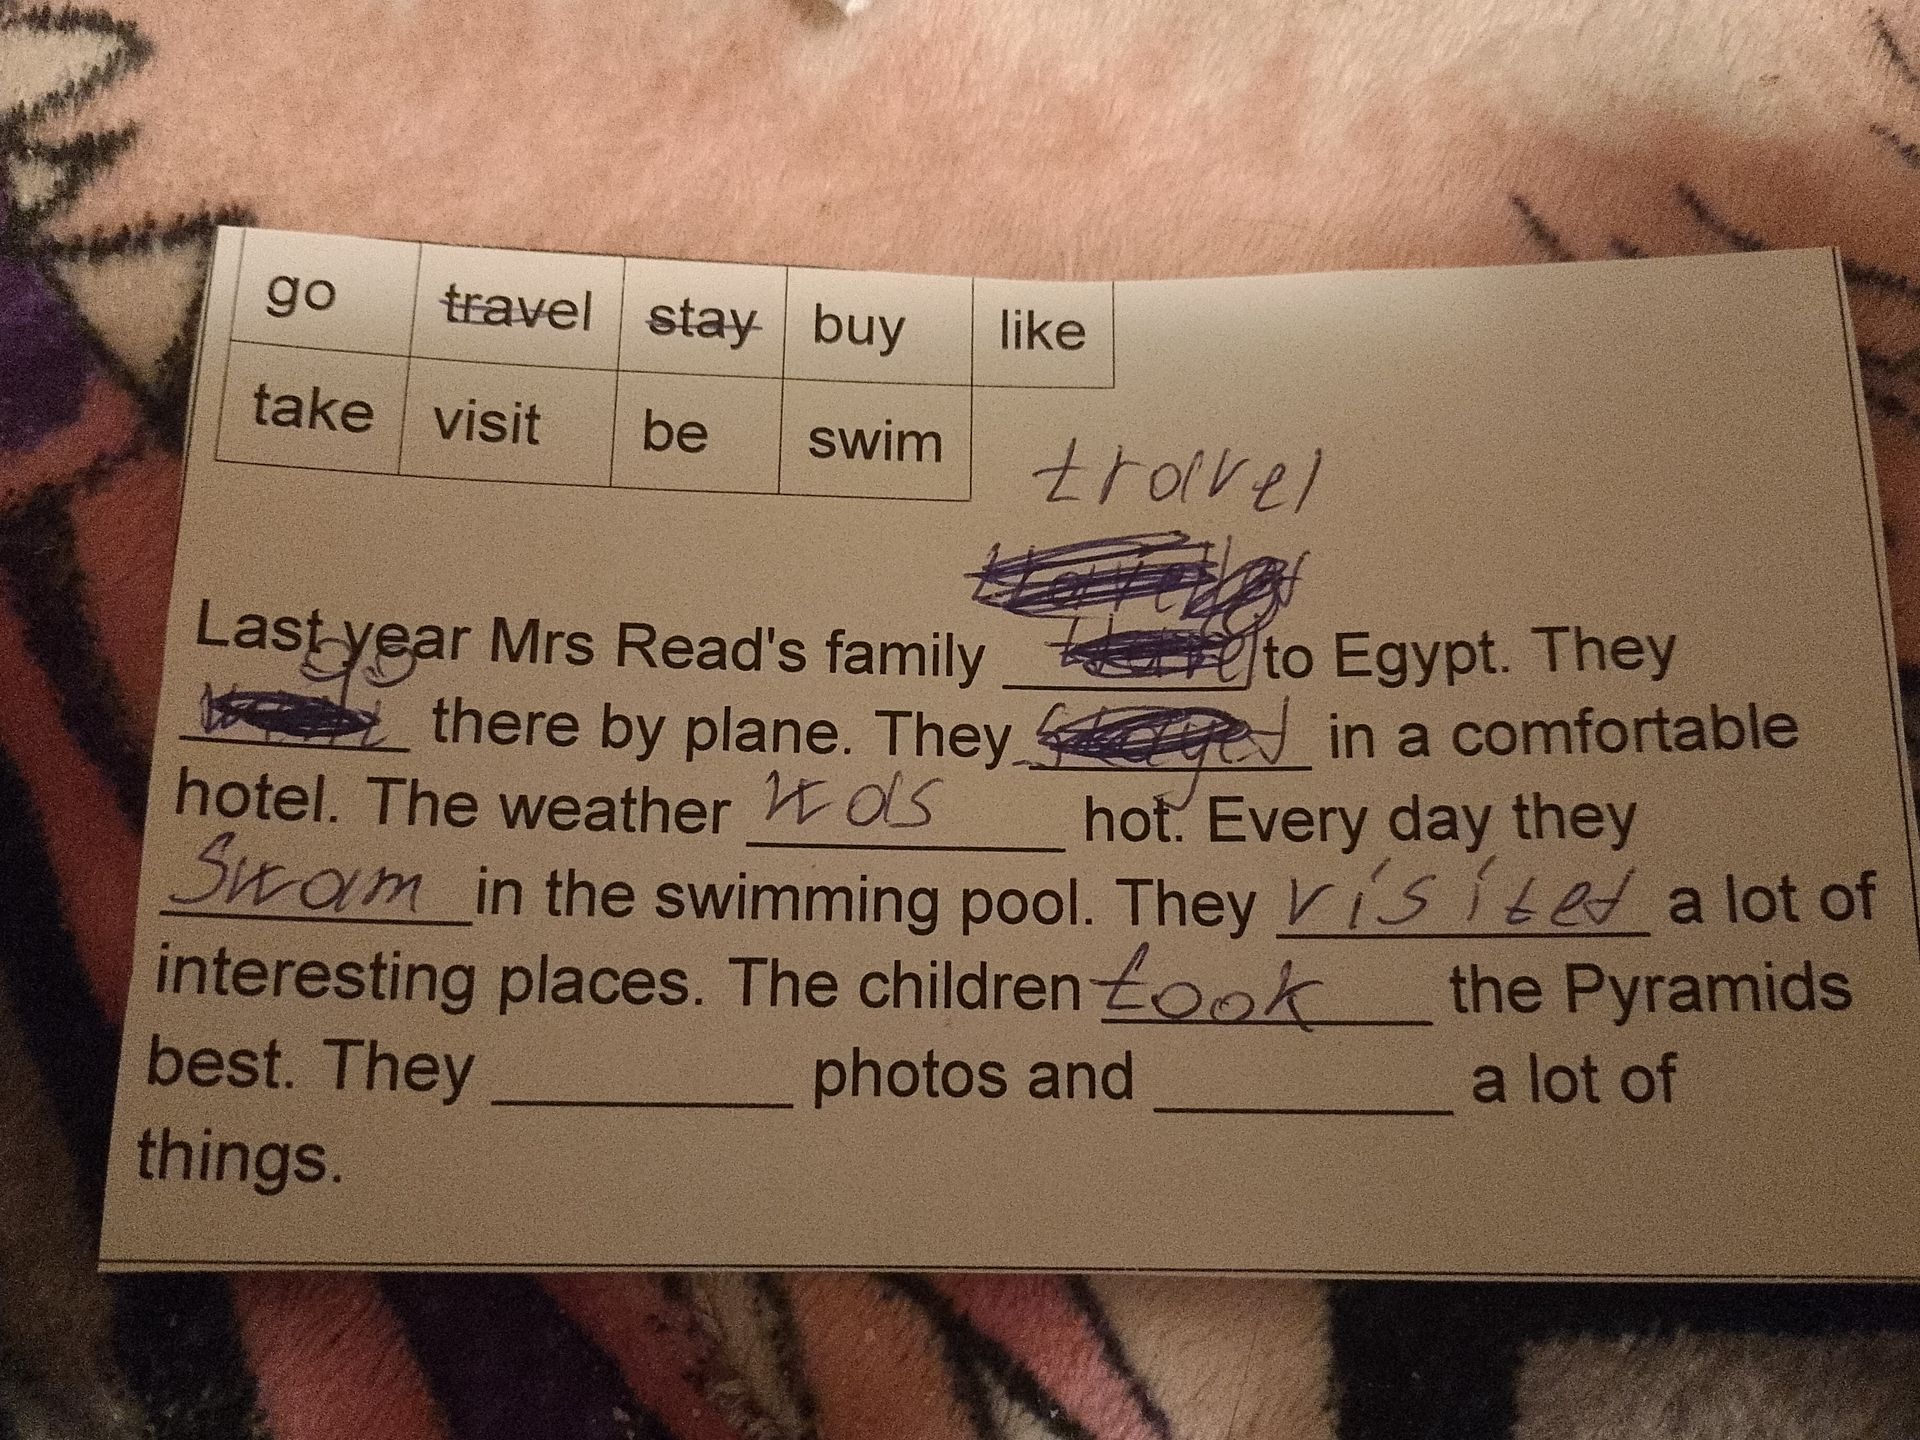 go travel stay buy like
take visit be swim
travel
Last year Mrs Read's family to Egypt. They
go
there by plane. They stayed in a comfortable
hotel. The weather was hot. Every day they
Swam in the swimming pool. They visited a lot of
interesting places. The children took the Pyramids
best. They photos and a lot of
things.